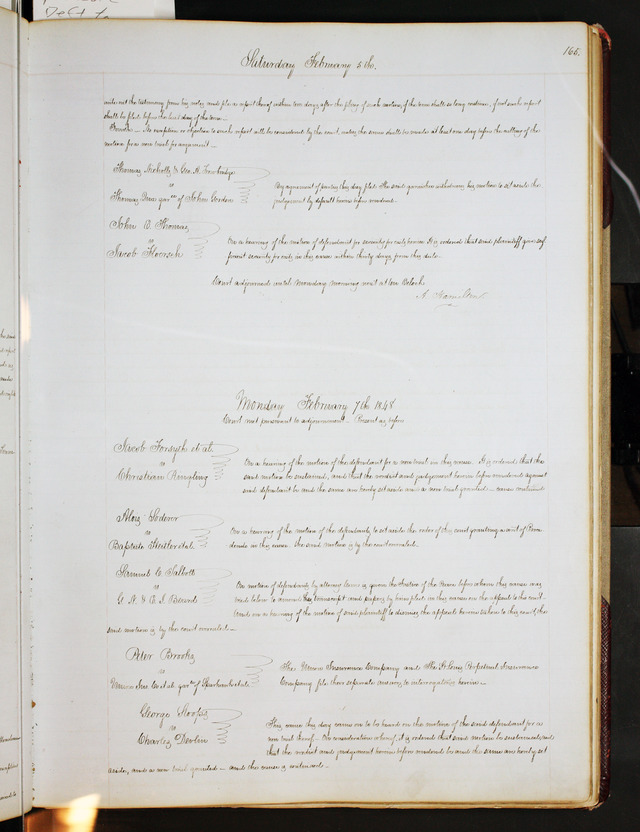 166.
Saturday February 5th.
write out the testimony from his notes and file a report thereof within ten days after the filing of such motion, if the term shall so long continue, if not such report
shall be filed before the last day of the term.
No exception or objection to such report will be considered by the court, unless the same shall be made at least one day before the calling of the
motion for a new trial for argument.
Thomas & Geo. A. Trowbridge
vs
Thomas garee of John Gordon
By agreement of parties this day filed. The said garnishee withdraws his motion to set aside the
judgement by default herein before rendered.
John C. Thomas
vs
Jacob
On a hearing of the motion of defendant for security for costs herein It is ordered that said plaintiff give sufficient security for costs in this cause within thirty days from this date.
Court adjourned until Monday morning next at ten Oclock
A. Hamilton
Monday February 7th 1848
Court met pursuant to adjournment. Present as before
Jacob Forsyth et al.
vs
Christian
On a hearing of the motion of the defendant for a new trial in this cause. It is ordered that the
said motion be sustained, and that the verdict and judgement herein before rendered against
said defendant be and the same are hereby set aside and a new trial granted. cause continued
vs
Baptiste et al.
On a hearing of the motion of the defendants to set aside the order of this court granting a writ of
in this cause. the said motion is by the court overruled.
Samuel C. Talbott
vs
G. A. & C. I.
On motion of defendants by attorney leave is given the Justice of the Peace before whom this cause was
tried below to amend his transcript and papers by him filed in this cause on the appeal to this court
And on a hearing of the motion of said plaintiff to dismiss the appeal herein taken to this court, the
said motion is by the court overruled.
Peter Brooks
vs
Union Ins Co et al. garee of
The Union Insurance Company and The St Louis Perpetual Insurance
Company file their separate answers to interrogatories herein.
George
vs
Charles Devlin
This cause this day came on to be heard on the motion of the said defendant for a
new trial thereof. On consideration whereof, it is ordered that said motion be sustained, and
that the verdict and judgement herein before rendered be and the same are hereby set
aside, and a new trial granted. and the cause is continued.